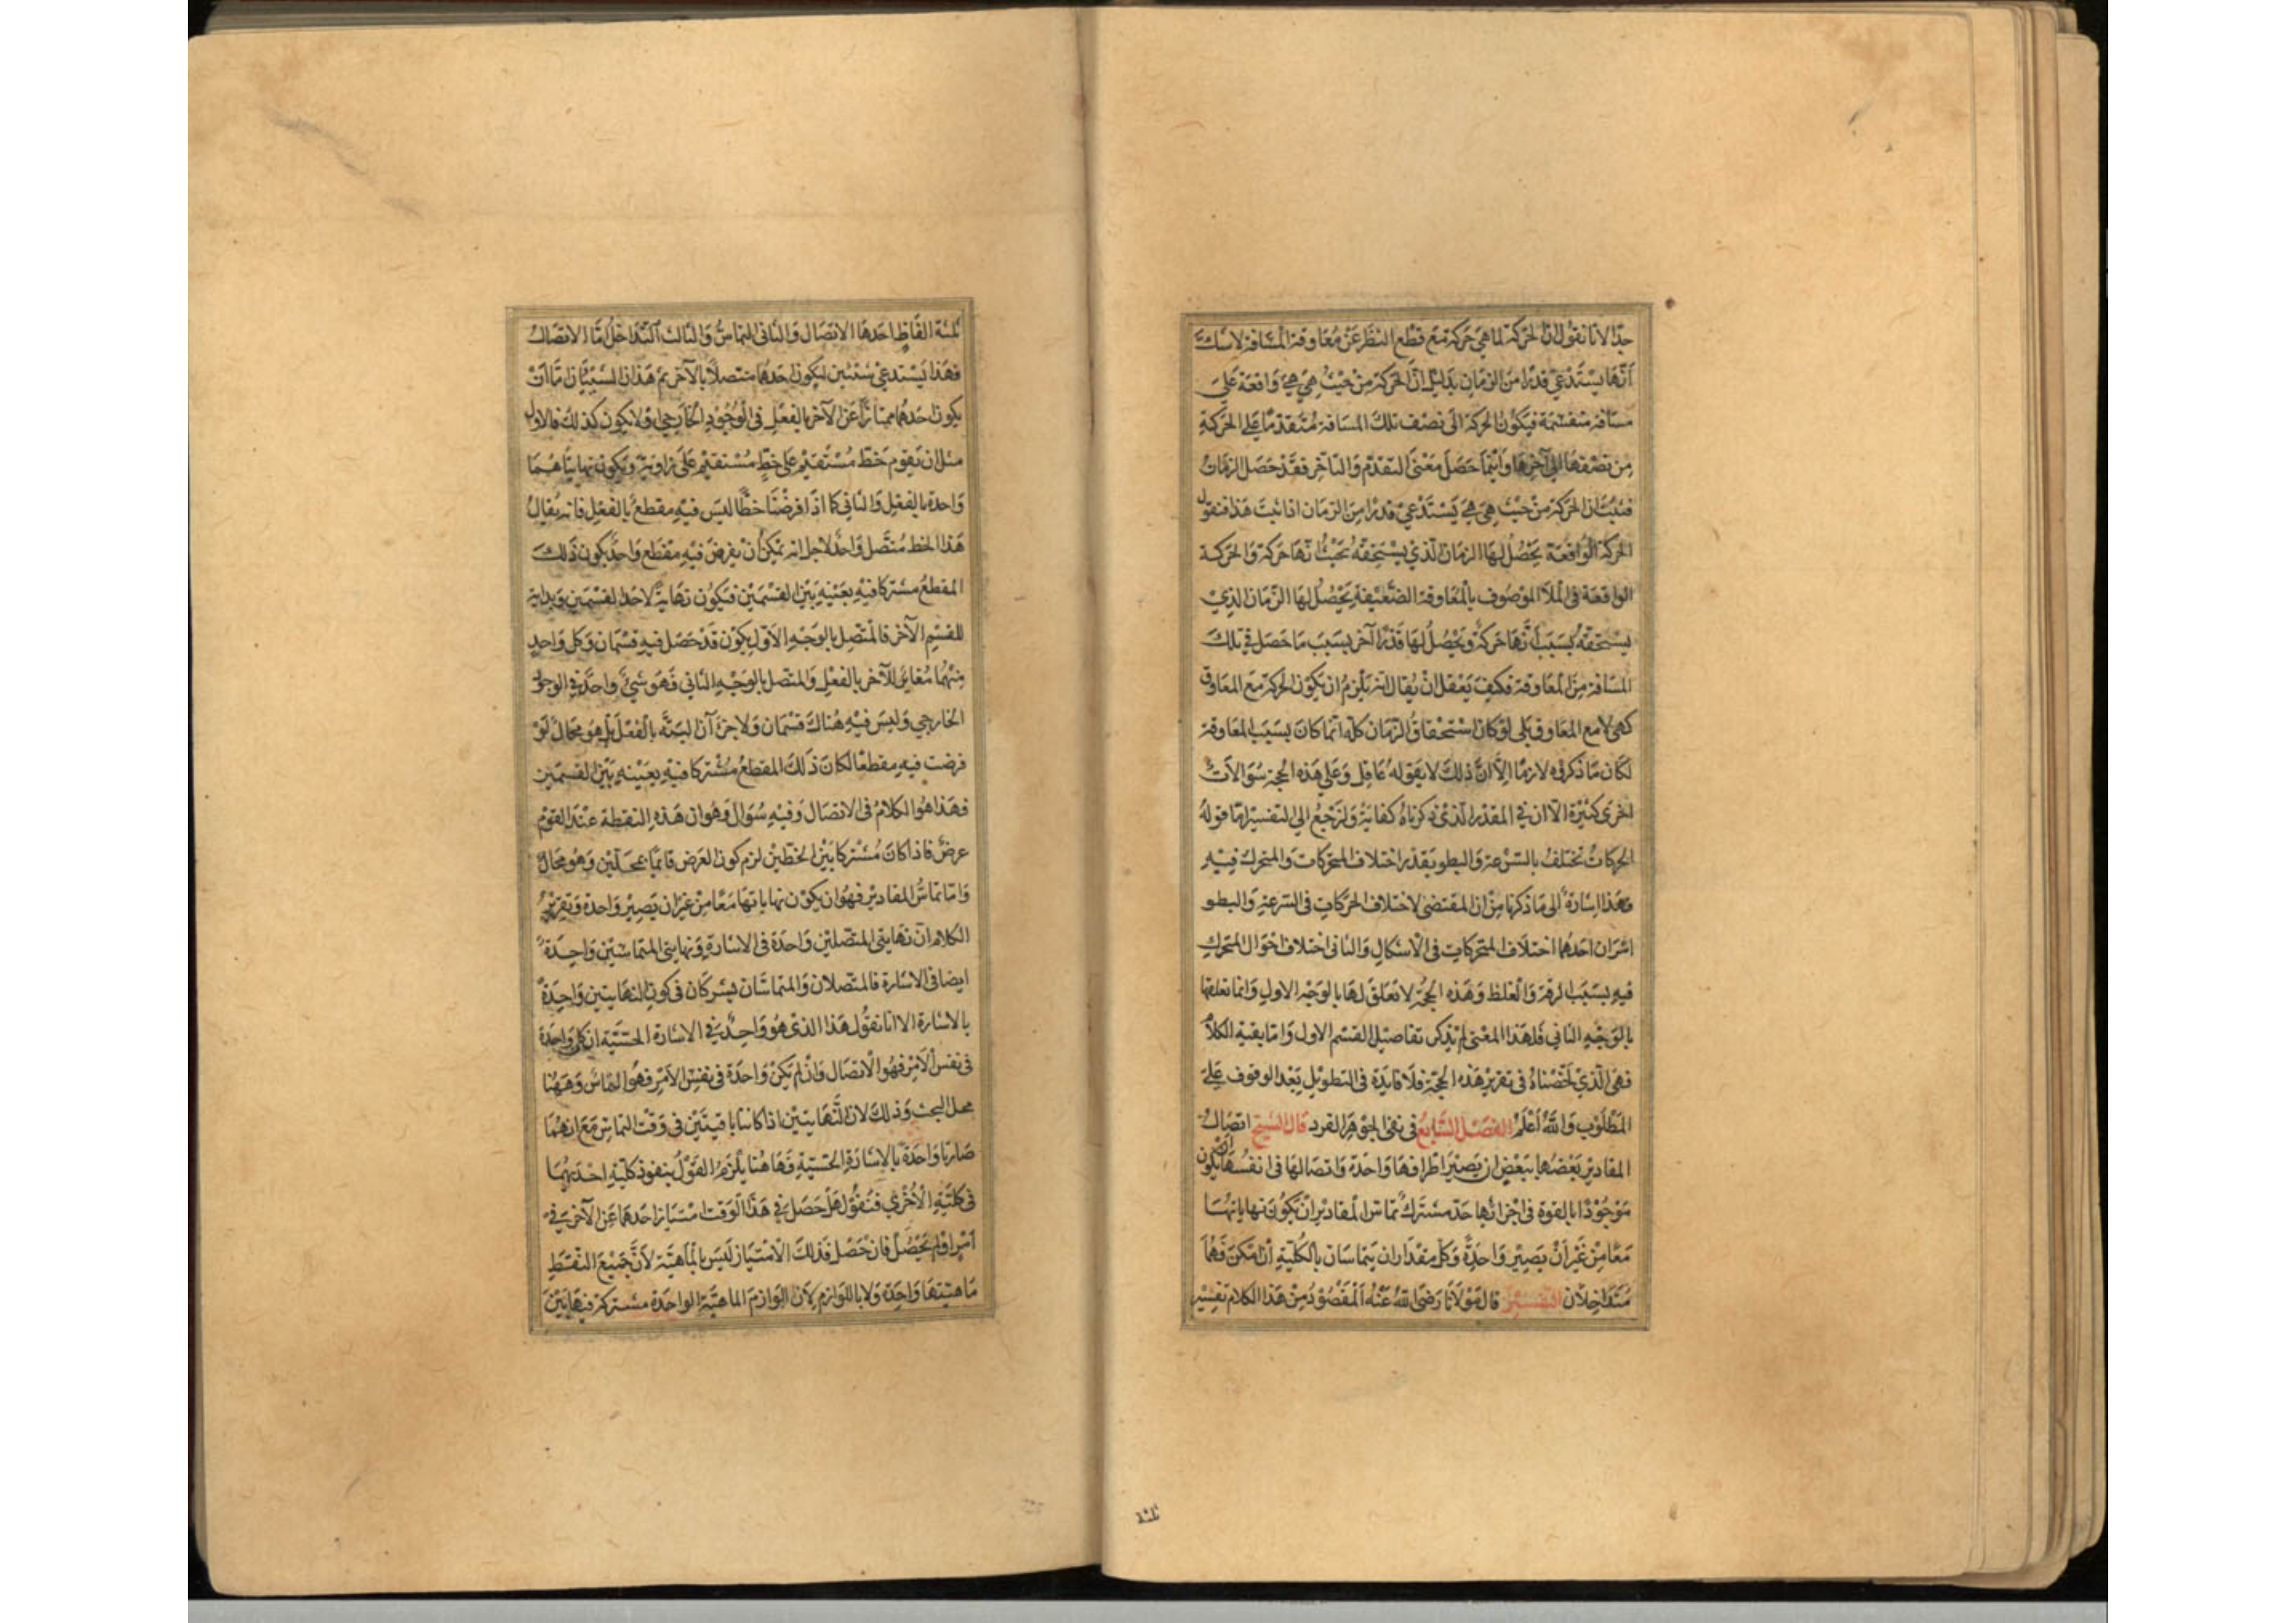 جدّا لانا نقول ان الحركة لما هي حركة مع قطع النظر عن معاوقة المسافة لا شك
أنها يستدعي قدرا من الزمان بدليل ان الحركة من حيث هي هي واقعة على
مسافة منقسمة فيكون الحركة الى نصف تلك المسافة متقدما على الحركة
من نصفها الى آخرها وانما حصل معنى التقدم والتاخر فقد حصل الزمان
فثبت ان الحركة من حيث هي هي يستدعي قدرا من الزمان اذا ثبت هذا فنقول
الحركة الواقعة يحصل لها الزمان الذي يستحقه بحيث انها حركة والحركة
الواقعة في الملأ الموصوف بالمعاوقة الضعيفة يحصل لها الزمان الذي
يستحقه بسبب أنها حركة ويحصل لها قدرا آخر بسبب ما حصل في تلك
المسافة من المعاوقة فكيف يعقل ان يقال انه يلزم ان يكون الحركة مع المعاوق
كهي لا مع المعاوق بلى لو كان استحقاق الزمان كله انما كان بسبب المعاوقة
لكان ما ذكروه لازما الا ان ذلك لا يقوله عاقل وعلى هذه الحجة سوالات
اخرى كثيرة الا ان في المقدر الذى ذكرناه كفاية ولنرجع الى التفسير اما قوله
الحركات تختلف بالسرعة والبطو بقدر اختلاف المتحركات والمتحرك فيه
فهذا اشارة الى ما ذكرنا من ان المقتضى لاختلاف الحركات في السرعة والبطو
امران احدهما اختلاف المتحركات في الاشكال والثانى اختلاف احوال المتحرك
فيه بسبب الرقة والغلظ وهذه الحجة لا تعلق لها بالوجه الاول وانما تعلقها
بالوجه الثاني فلهذا المعنى لم يذكر تفاصيل القسم الاول واما بقية الكلام
فهى الذي لخصناه في تقرير هذه الحجة فلا فايدة في التطويل بعد الوقوف على
المطلوب والله أعلم الفصل السابع في نفى الجوهر الفرد قال الشيخ اتصال
المقادير بعضها ببعض ان يصير اطرافها واحدة واتصالها في انفسها ان يكون
موجودا بالقوة في اجزائها حد مشترك تماس المقادير ان يكون نهاياتها
معا من غير أن يصير واحدة وكل مقداران يتماسان بالكلية ان امكن فهما
متداخلان التفسير قال مولانا رضى الله عنه المقصود من هذا الكلام تفسير
ثلثة
ثلثة الفاظ احدها الاتصال والثانى التماس والثالث التداخل اما الاتصال
فهذا يستدعي شيئين ليكون احدهما متصلا بالآخر ثم هذان الشيئان اما ان
يكون احدهما ممتازا عن الآخر بالفعل في الوجود الخارجي او لا يكون كذلك فالاول
مثل ان يقوم خط مستقيم على خط مستقيم على زاوية ويكون نهايتاهما
واحدة بالفعل والثاني كما اذا فرضنا خطا ليس فيه مقطع بالفعل فانه يقال
هذا الخط متصل واحد لاجل انه يمكن أن يفرض فيه مقطع واحد يكون ذلك
المقطع مشتركا فيه بعينه بين القسمين فيكون نهاية لاحد القسمين وبداية
للقسم الآخر فالمتصل بالوجه الاول يكون قد حصل فيه قسمان وكل واحد
منهما مغاير للآخر بالفعل والمتصل بالوجه الثاني فهو شيء واحد في الوجود
الخارجي وليس فيه هناك قسمان ولا جزءآن البتة بالفعل بل هو محال لو
فرضت فيه مقطعا لكان ذلك المقطع مشتركا فيه بعينه بين القسمين
فهذا هو الكلام في الاتصال وفيه سوال وهو ان هذه النقطة عند القوم
عرض فاذا كانت مشتركا بين الخطين لزم كون العرض قائما بمحلين وهو محال
واما تماس المقادير فهو ان يكون نهاياتها معا من غير ان يصير واحدة وتقرير
الكلام ان نهايتى المتصلين واحدة في الاشارة ونهايتى المتماسين واحدة
ايضا في الاشارة فالمتصلان والمتماسان يشتركان في كون النهايتين واحدة
بالاشارة الا انا نقول هذا الذى هو واحد في الاشارة الحسّية ان كان واحدة
في نفس الامر فهو الاتصال وان لم يكن واحدة في نفس الامر فهو التماس وههنا
محل البحث وذلك لان النهايتين اذا كانتا باقيتين في وقت التماس مع انهما
صارتا واحدة بالاشارة الحسّية فهاهنا يلزم القول بنفوذ كلية احديهما
في كلية الأخرى فنقول هل حصل في هذا الوقت امتياز احدهما عن الآخر في
امر او لم يحصل فان حصل فذلك الامتياز ليس بالماهية لأن جميع النقط
ماهيتها واحدة ولا باللوازم لان اللوازم الماهية الواحدة مشتركة فيها بين